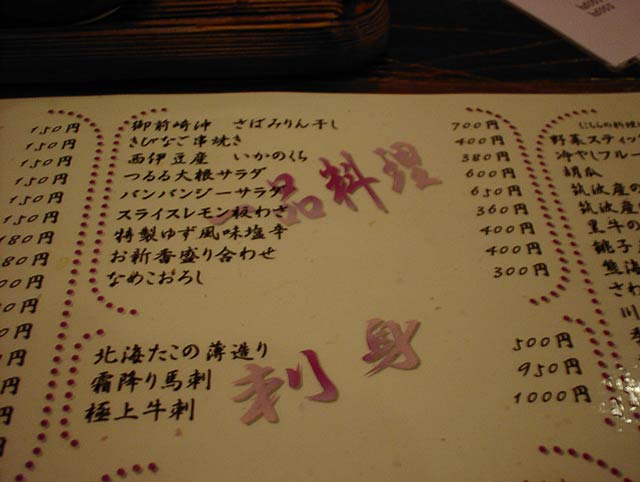 150円
150円
150円
150円
150円
150円
180円
180円
御前崎沖　さばみりん干し　700円
きびなご串焼き　400円
西伊豆産　いかのくち　380円
つるる大根サラダ　600円
バンバンジーサラダ　650円
スライスレモン板わさ　360円
特製ゆず風味塩辛　400円
お新香盛り合わせ　400円
なめこおろし　300円
一品料理
北海たこの薄造り　500円
霜降り馬刺　950円
極上牛刺　1000円
刺身
野菜スティッ
冷やしフルー
胡瓜
筑波産の
筑波産
黒牛の
銚子
熊海
さわ
川